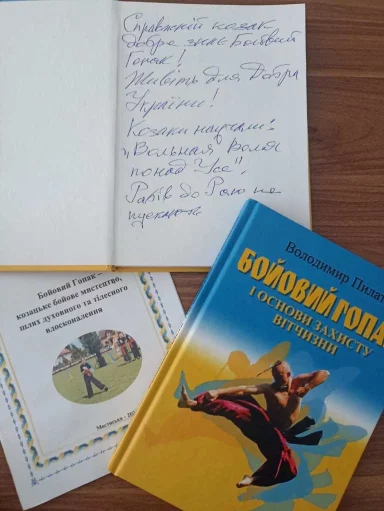 Справжній козак
добре знає Бойовий
Гопак!
Живіть для Добра
України!
Козаки
"Вольная Воля
понад Усе".
Рабів до Раю не
пускають
Бойовий Гопак –
козацьке бойове мистецтво,
шлях духовного та тілесного
вдосконалення
Мостиська - 20
Володимир Пилат
БОЙОВИЙ ГОПА
І ОСНОВИ ЗАХИСТУ
ВІТЧИЗНИ